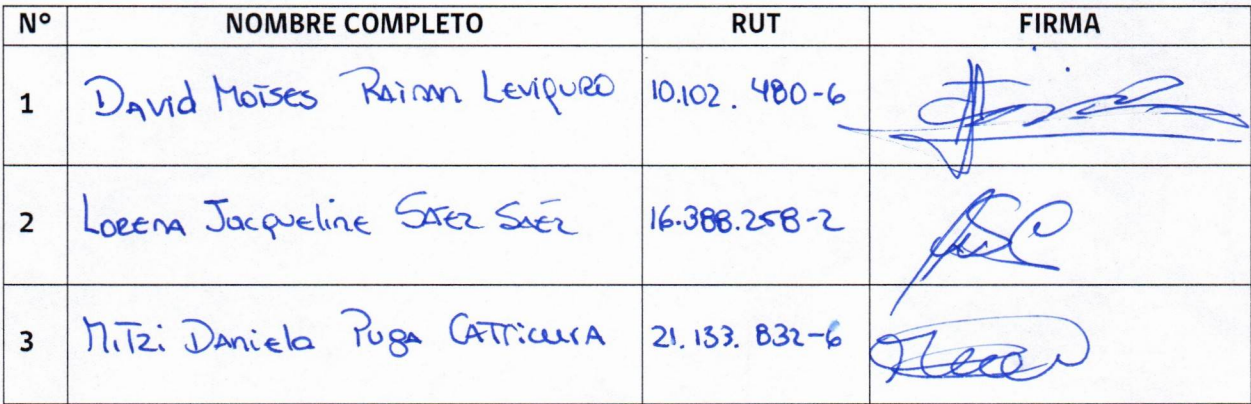 N° NOMBRE COMPLETO RUT FIRMA
1 David Moises Raiman Leviquro 10.102.480-6
2 Lorena Jacqueline Saez Saéz 16.388.258-2
3 Mitzi Daniela Puga Catricura 21.133.832-6